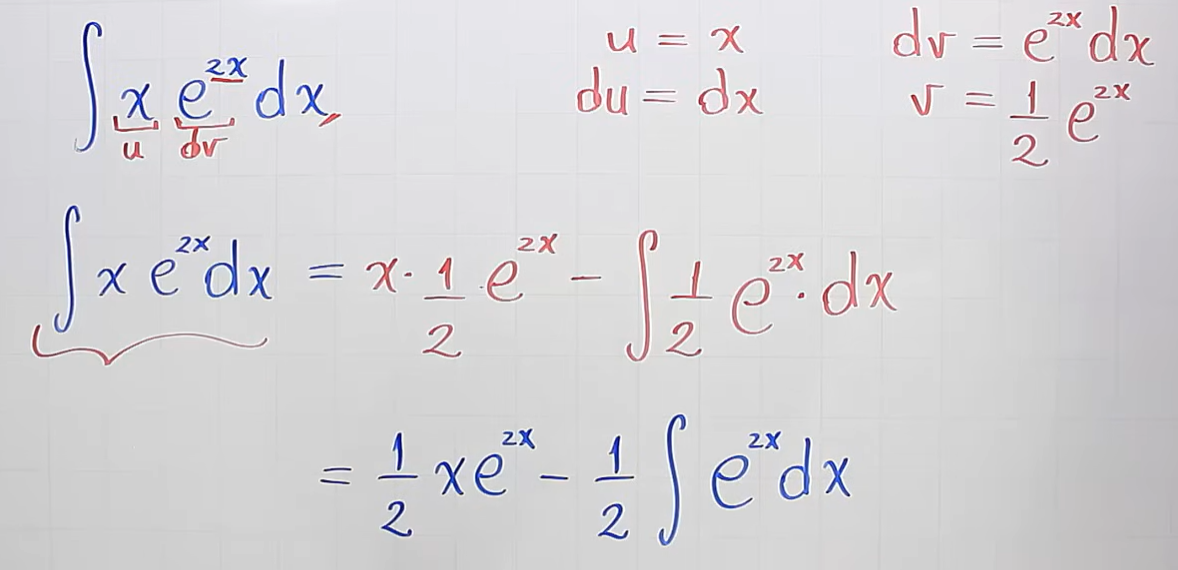 ∫ x e^{2x} dx, u = x dv = e^{2x} dx
u dv du = dx v = 1/2 e^{2x}
∫ x e^{2x} dx = x · 1/2 · e^{2x} − ∫ 1/2 e^{2x} · dx
= 1/2 x e^{2x} − 1/2 ∫ e^{2x} dx